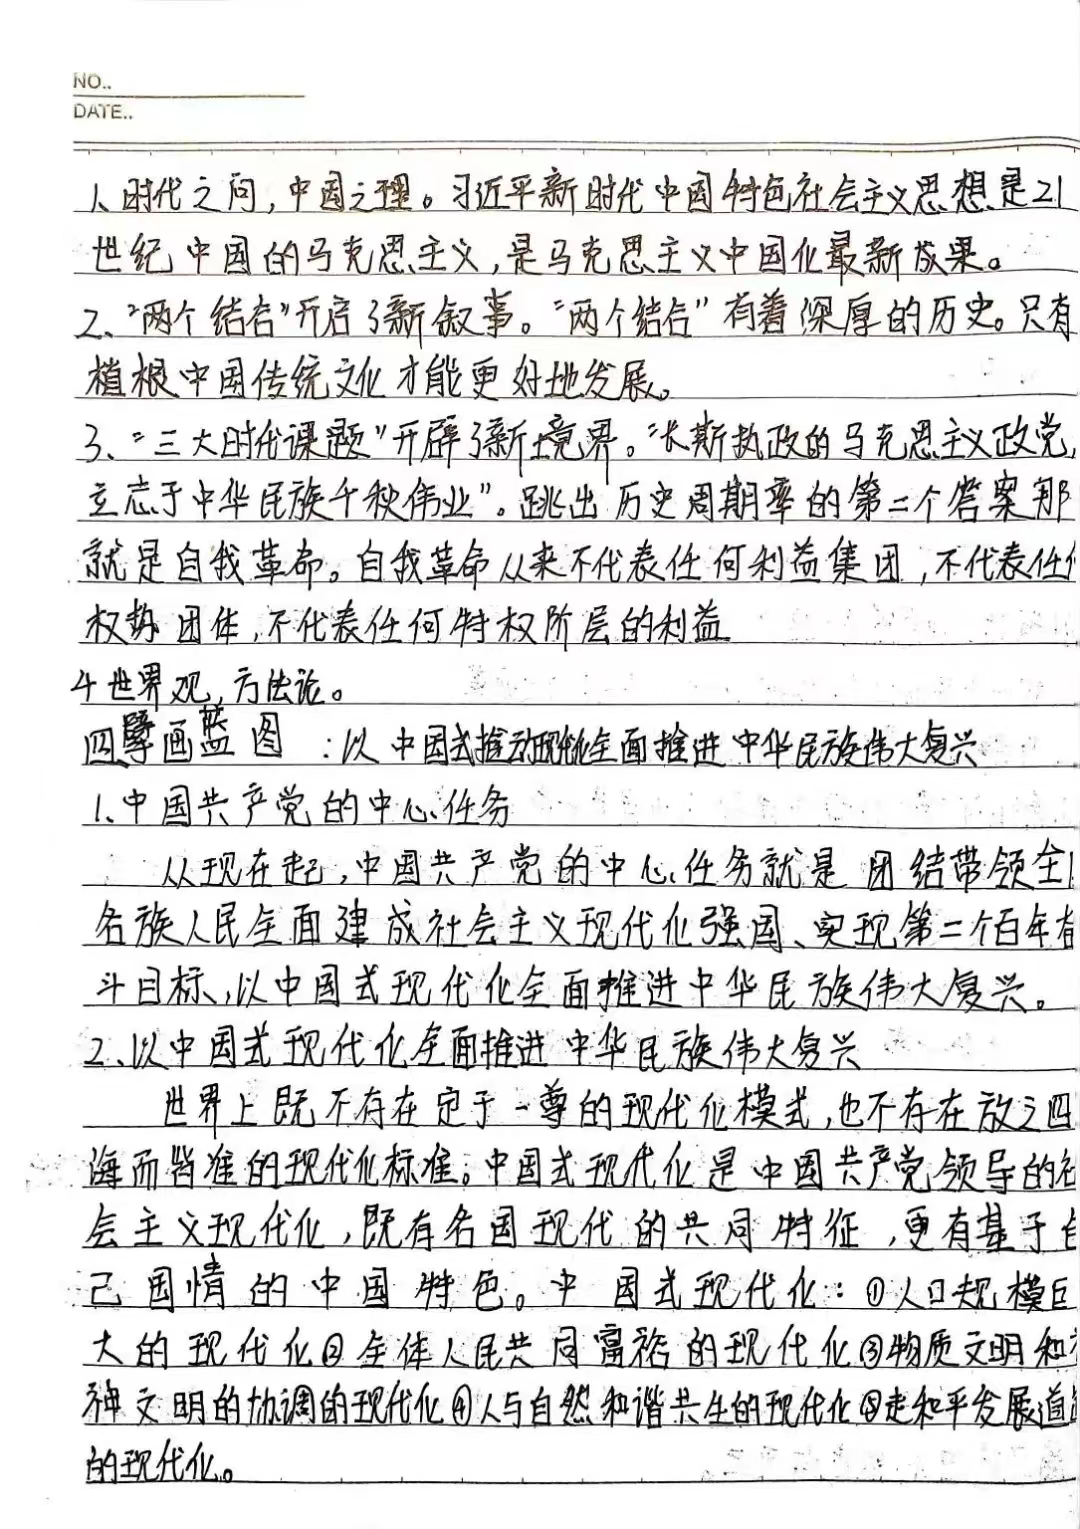 NO..
DATE..
1、时代之问，中国之理。习近平新时代中国特色社会主义思想是21
世纪中国的马克思主义，是马克思主义中国化最新成果。
2、“两个结合”开启了新叙事。“两个结合”有着深厚的历史。只有
植根中国传统文化才能更好地发展。
3、“三大时代课题”开辟了新境界。“长期执政的马克思主义政党，
立志于中华民族千秋伟业”。跳出历史周期率的第二个答案那
就是自我革命。自我革命从来不代表任何利益集团，不代表任何
权势团体，不代表任何特权阶层的利益
4世界观，方法论。
四擘画蓝图：以中国式推动现代化全面推进中华民族伟大复兴
1、中国共产党的中心任务
从现在起，中国共产党的中心任务就是团结带领全
各族人民全面建成社会主义现代化强国、实现第二个百年奋
斗目标，以中国式现代化全面推进中华民族伟大复兴。
2、以中国式现代化全面推进中华民族伟大复兴
世界上既不存在定于一尊的现代化模式，也不存在放之四
海而皆准的现代化标准。中国式现代化是中国共产党领导的社
会主义现代化，既有各国现代的共同特征，更有基于自
己国情的中国特色。中国式现代化：①人口规模巨
大的现代化②全体人民共同富裕的现代化③物质文明和
神文明的协调的现代化④人与自然和谐共生的现代化⑤走和平发展道
的现代化。